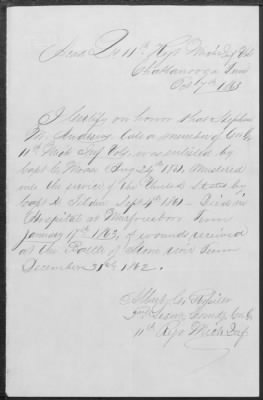 Head Qrs 11th Regt Mich Inf Vols
Chattanooga Tenn
Oct 7th 1863
I Certify on honor that Stephen
M. Andrews, late a member of Co C,
11th Mich Inf Vols, was enlisted by
Capt C. Moase Aug 24th 1861, Mustered
into the service of the United States by
Capt H. Sept 4th 1861 - Died in
Hospital at Murfreesboro Tenn
January 17th 1863, of wounds received
at the Battle of Stone river Tenn
December 31st 1862.
Albert
2nd Lieut Comdg Co C
11th Regt Mich Inf